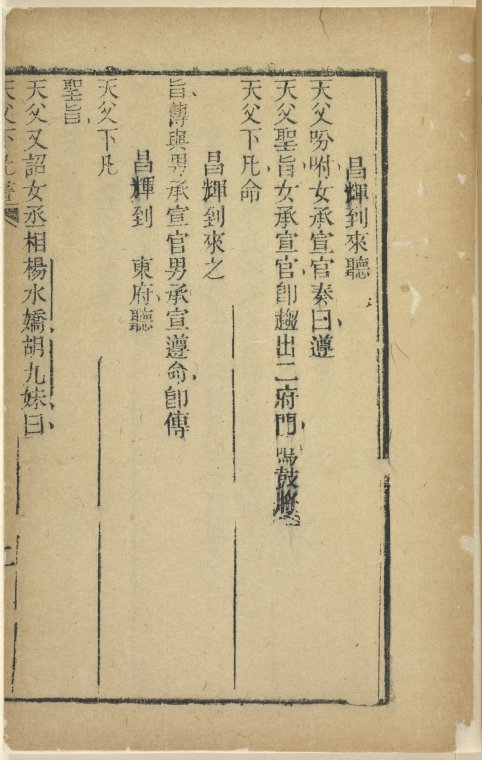 昌輝到來聽
天父吩咐女承宣官奏曰遵
天父聖旨女承宣官卽趨出二府門鳴鼓將
天父下凡命
昌輝到來之
旨傳與男承宣官男承宣遵命卽傳
昌輝到 東府聽
天父下凡
聖旨
天父又詔女丞相楊水嬌胡九妹曰
天父下凡